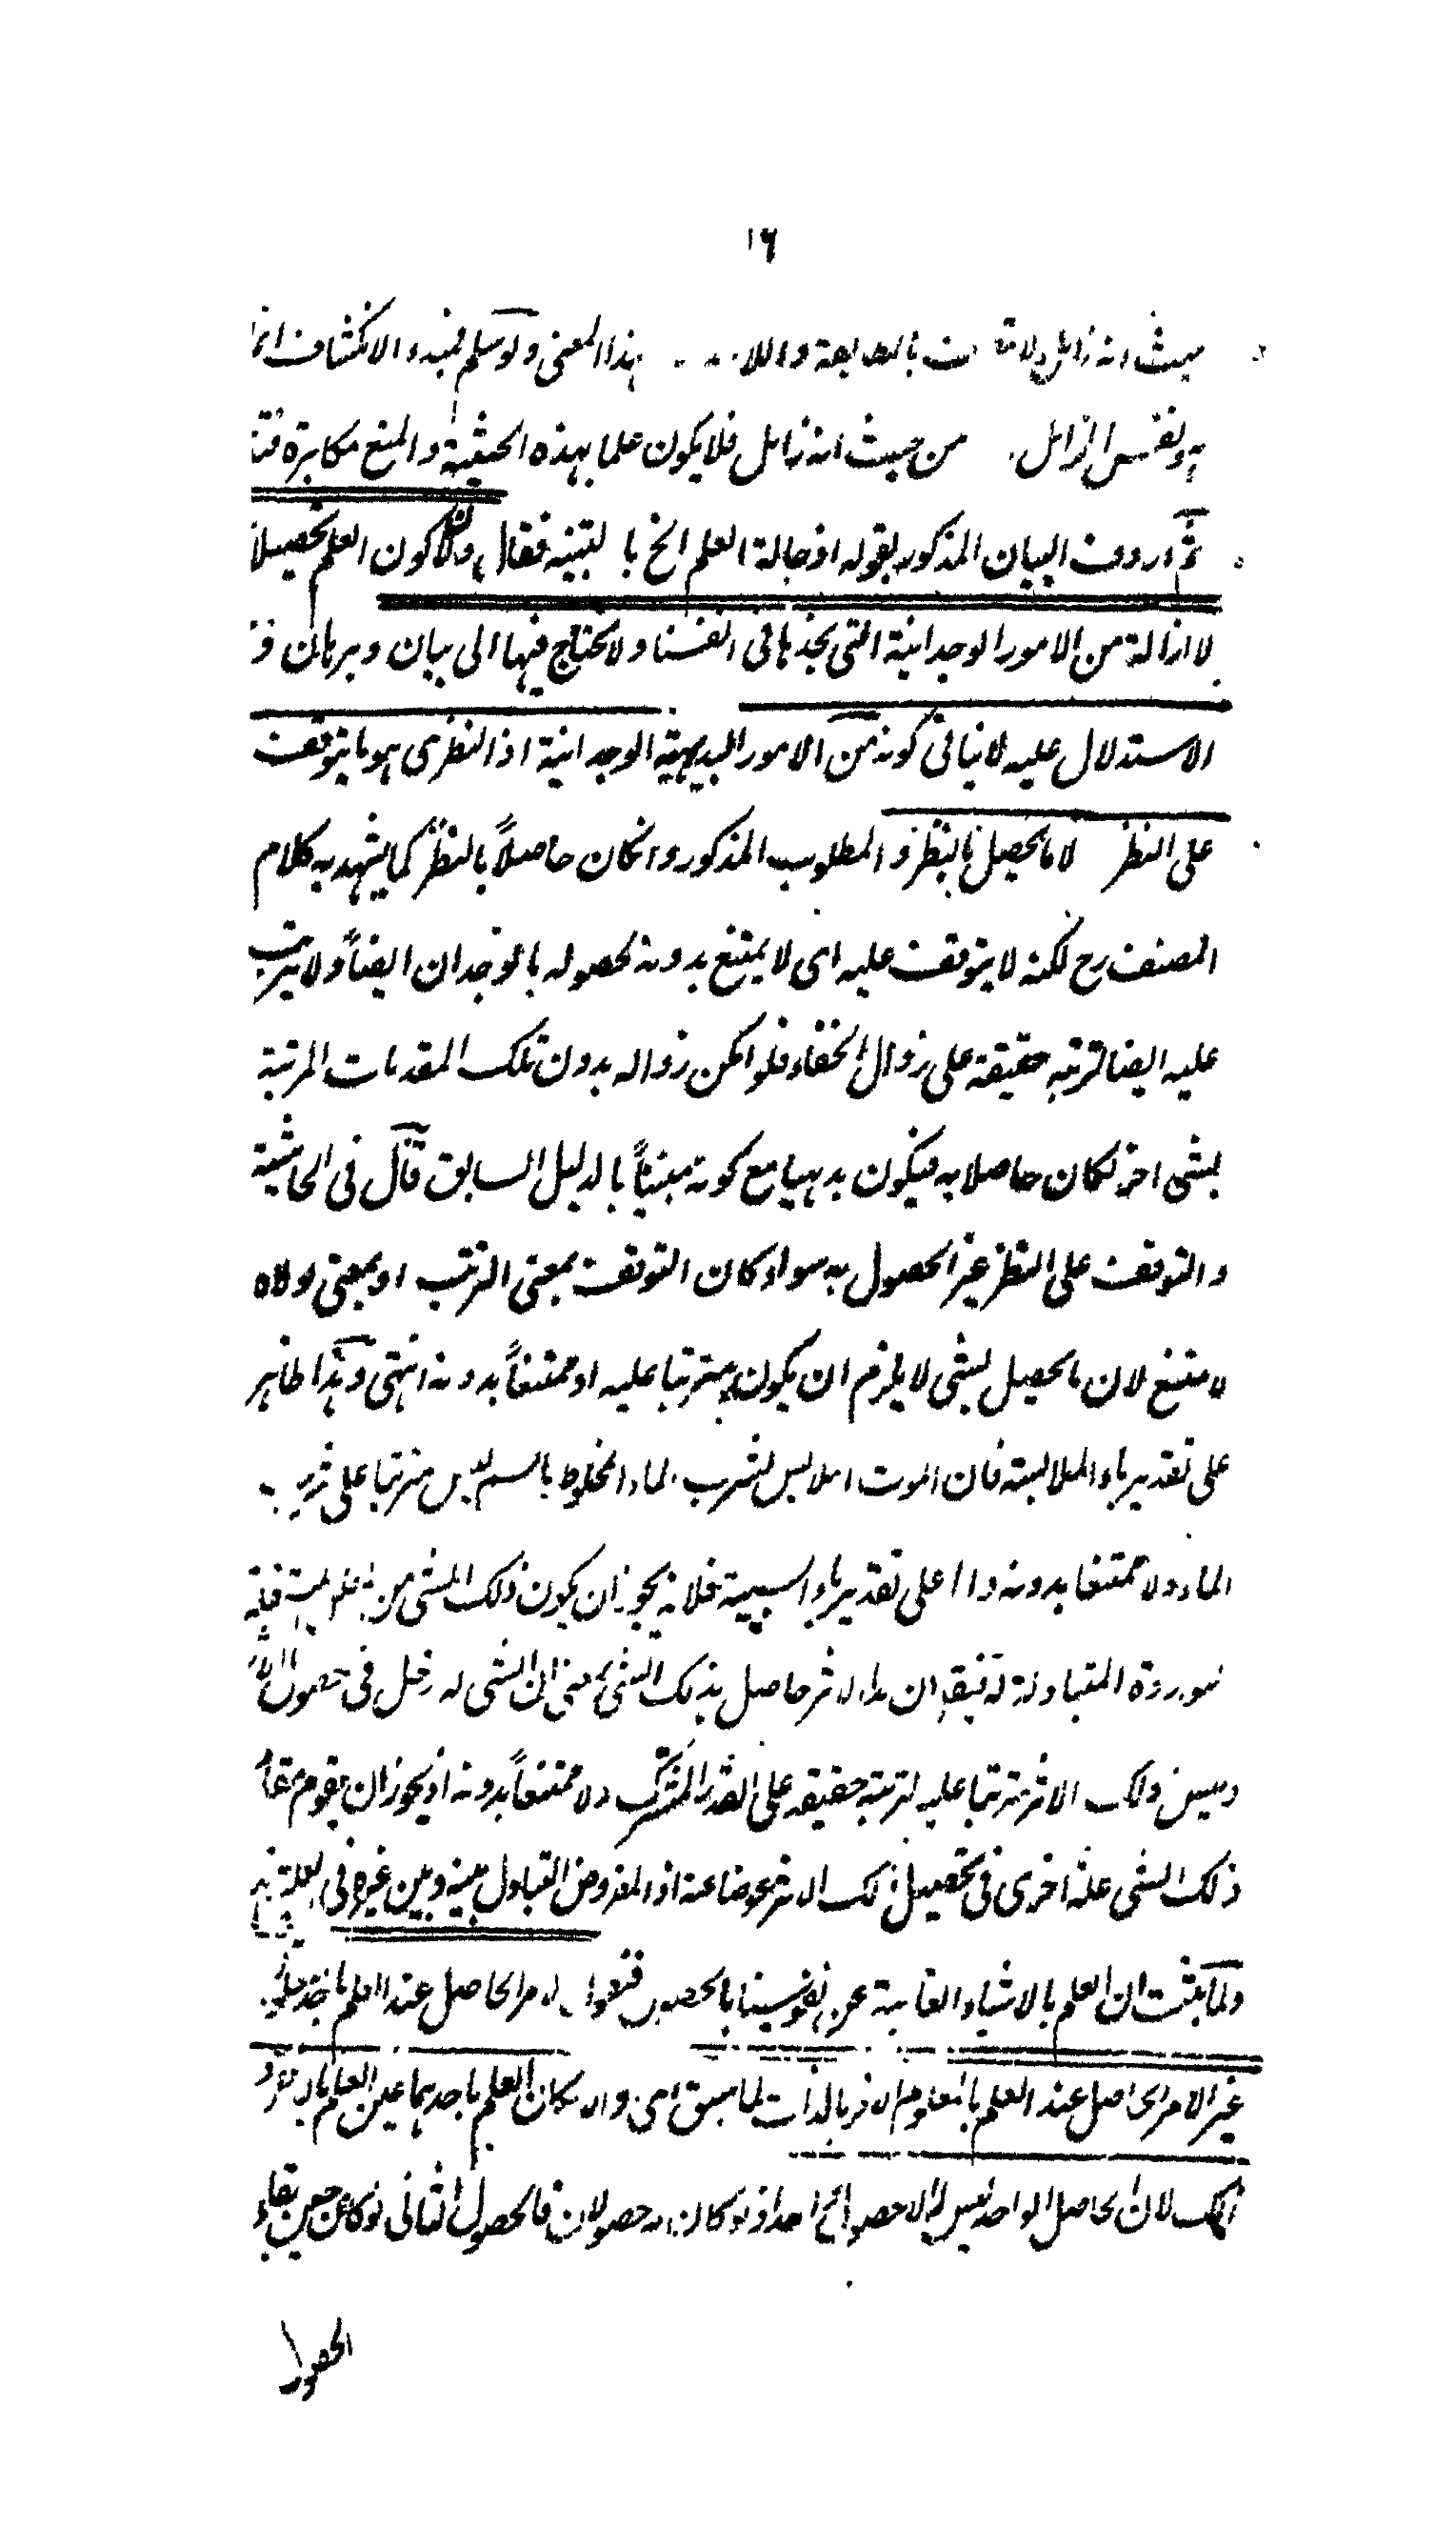 ١٦
حيث انه زائل بهذا المعنى ولو سلم فمبدء الانكشاف انما
هو نفس الزائل من حيث انه زائل فلا يكون علما بهذه الحيثية والمنع مكابرة
ثم اردف البيان المذكور بقوله اذ حالة العلم الخ بالتنبيه فقال ولان كون العلم تحصيلا
لا ازالة من الامور الوجدانية التى نجدها فى انفسنا ولا نحتاج فيها الى بيان وبرهان و
الاستدلال عليه لا ينافى كونه من الامور البديهية الوجدانية اذ النظرى هو ما يتوقف
على النظر لا ما يحصل بالنظر والمطلوب المذكور وانكان حاصلاً بالنظر كما يشهد به كلام
المصنف رح لكنه لا يتوقف عليه اى لا يمتنع بدونه لحصوله بالوجدان ايضاً ولا يترتب
عليه ايضا لترتبه حقيقة على زوال الخفاء فلو امكن زواله بدون تلك المقدمات المرتبة
بشئ اخر لكان حاصلا به فيكون بديهيا مع كونه مبنياً بالدليل السابق قال فى الحاشية
والتوقف على النظر غير الحصول به سواء كان التوقف بمعنى الترتب او بمعنى لولاه
لامتنع لان ما يحصل بشئ لا يلزم ان يكون مترتبا عليه او ممتنعاً بدونه انتهى وهذا ظاهر
على تقدير باء الملابسة فان الموت الملابس لشرب الماء المخلوط بالسم ليس مترتبا على شرب
الماء ولا ممتنعا بدونه واما على تقدير باء السببية فلانه يجوز ان يكون ذلك الشئ من
المتبادلة حاصل بذلك الشئ بمعنى ان الشئ له دخل فى حصول
وليس ذلك الاثر مترتبا عليه لترتبه حقيقة على القدر المشترك ولا ممتنعاً بدونه اذ يجوز ان يقوم مقام
ذلك الشئ علة اخرى فى تحصيل ذلك الاثر عوضا عنه اذ المفروض التبادل بينه وبين غيره فى العلية
ولما ثبت ان العلم بالاشياء الغائبة عن نفوسنا بالحصول فنقول الامر الحاصل عند العلم باحد
غير الامر الحاصل عند العلم بالمعلوم الاخر بالذات لما سبق والا لكان العلم باحدهما عين العلم بالاخر و
ذلك لان الحاصل الواحد ليس له الا حصول واحد اذ لو كان له حصولان فالحصول الثانى لو كان حين بقاء
الحصول